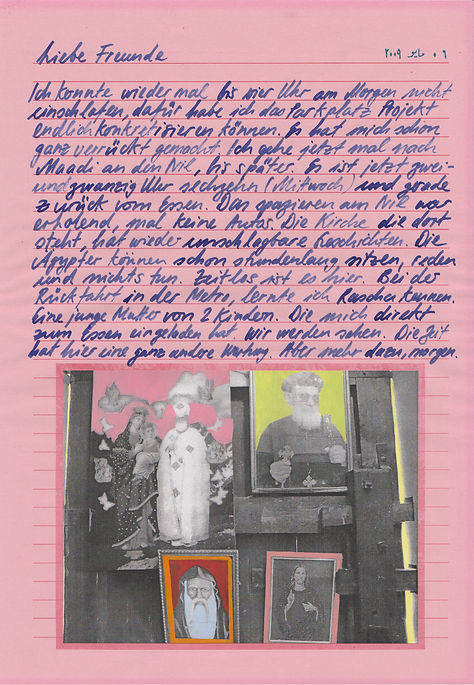 Liebe Freunde
٠٦ مايو ٢٠٠٩
Ich konnte wieder mal bis vier Uhr am Morgen nicht
einschlafen, dafür habe ich das Parkplatz Projekt
endlich konkretisieren können. Es hat mich schon
ganz verrückt gemacht. Ich gehe jetzt mal nach
Maadi an den Nil, bis später. Es ist jetzt zwei-
undzwanzig Uhr sechzehn (Mittwoch) und gerade
zurück vom Essen. Das spazieren am Nil war
erholend, mal keine Autos. Die Kirche die dort
steht, hat wieder unschlagbare Geschichten. Die
Ägypter können schon stundenlang sitzen, reden
und nichts tun. Zeitlos ist es hier. Bei der
Rückfahrt in der Metro, lernte ich Rascha kennen.
Eine junge Mutter von 2 Kindern. Die mich direkt
zum Essen eingeladen hat. Wir werden sehen. Die Zeit
hat hier eine ganz andere Wertung. Aber mehr dazu, morgen.